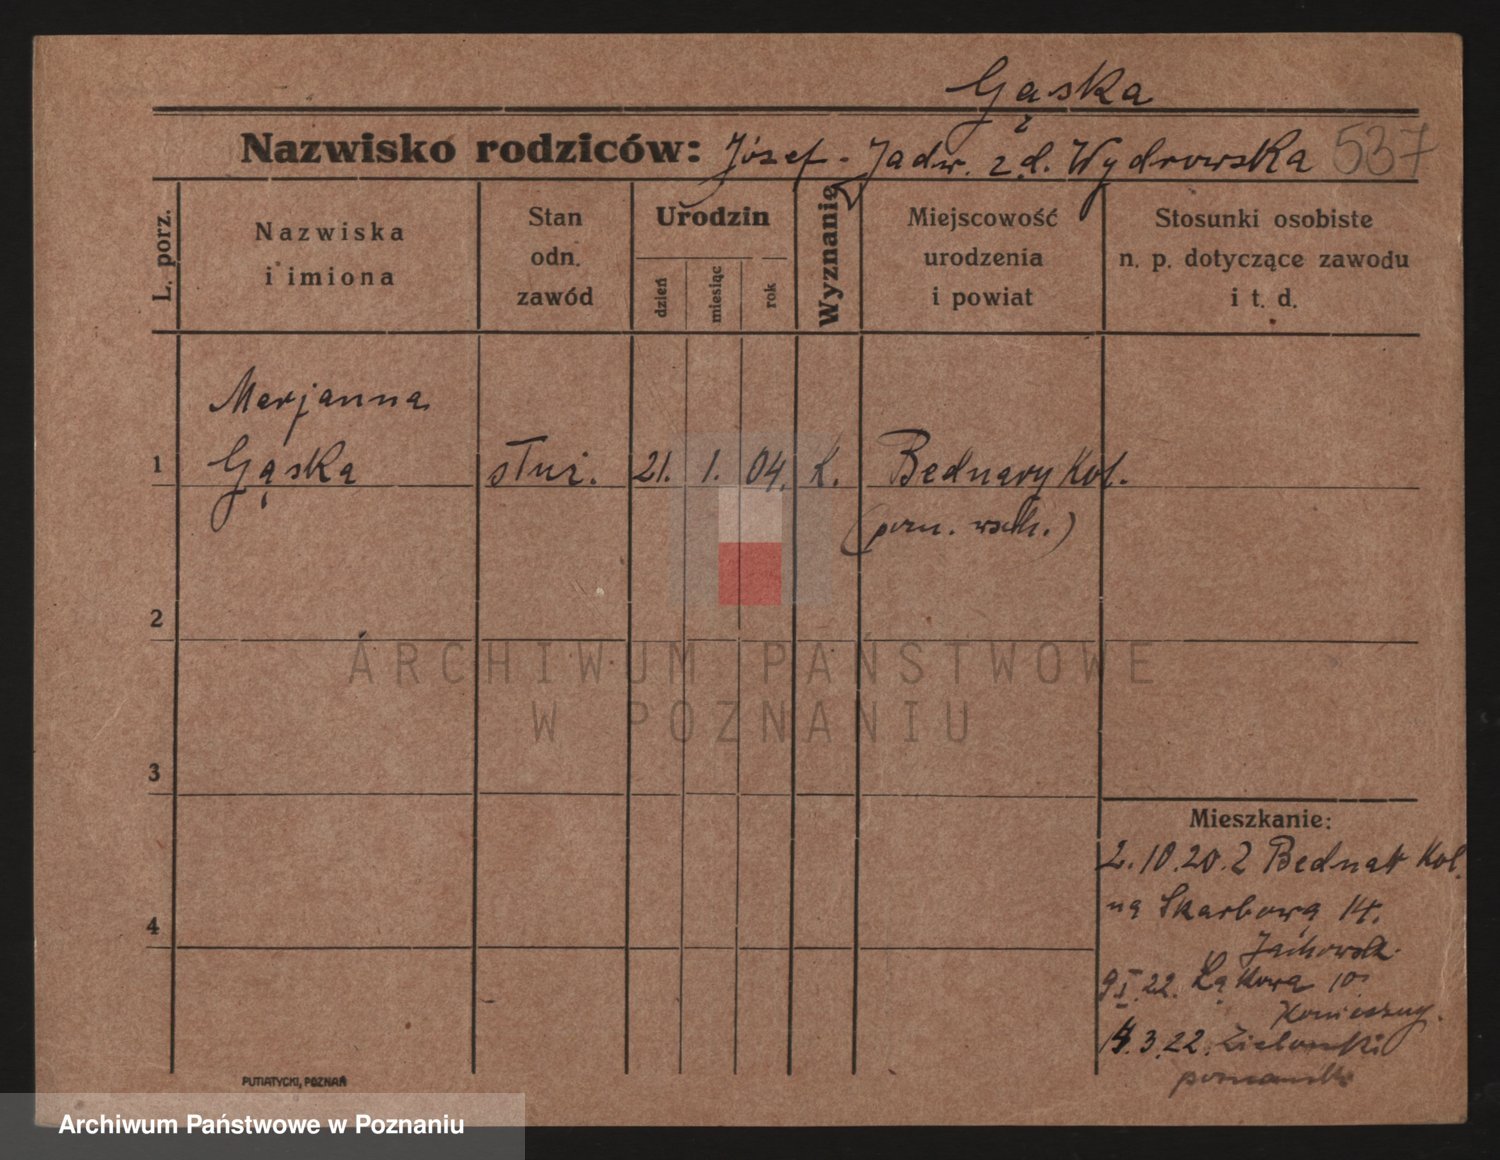 Gąska
Nazwisko rodziców: Józef - Jadw. z d. Wydrowska 537
L. porz.
Nazwiska
i imiona
Stan
odn.
zawód
Urodzin
dzień
miesiąc
rok
Wyznanie
Miejscowość
urodzenia
i powiat
Stosunki osobiste
n. p. dotyczące zawodu
i t. d.
Marjanna
1 Gąska służ. 21. 1. 04. k. Bednary Kol.
(pozn. wsch.)
2
ARCHIWUM PAŃSTWOWE
W POZNANIU
3
Mieszkanie:
2.10.20. z Bednar Kol.
4 na Skarbową 14.
9.I.22. Łąkowa 10
3.22. Zielonki
poznański
PUTIATYCKI, POZNAŃ
Archiwum Państwowe w Poznaniu